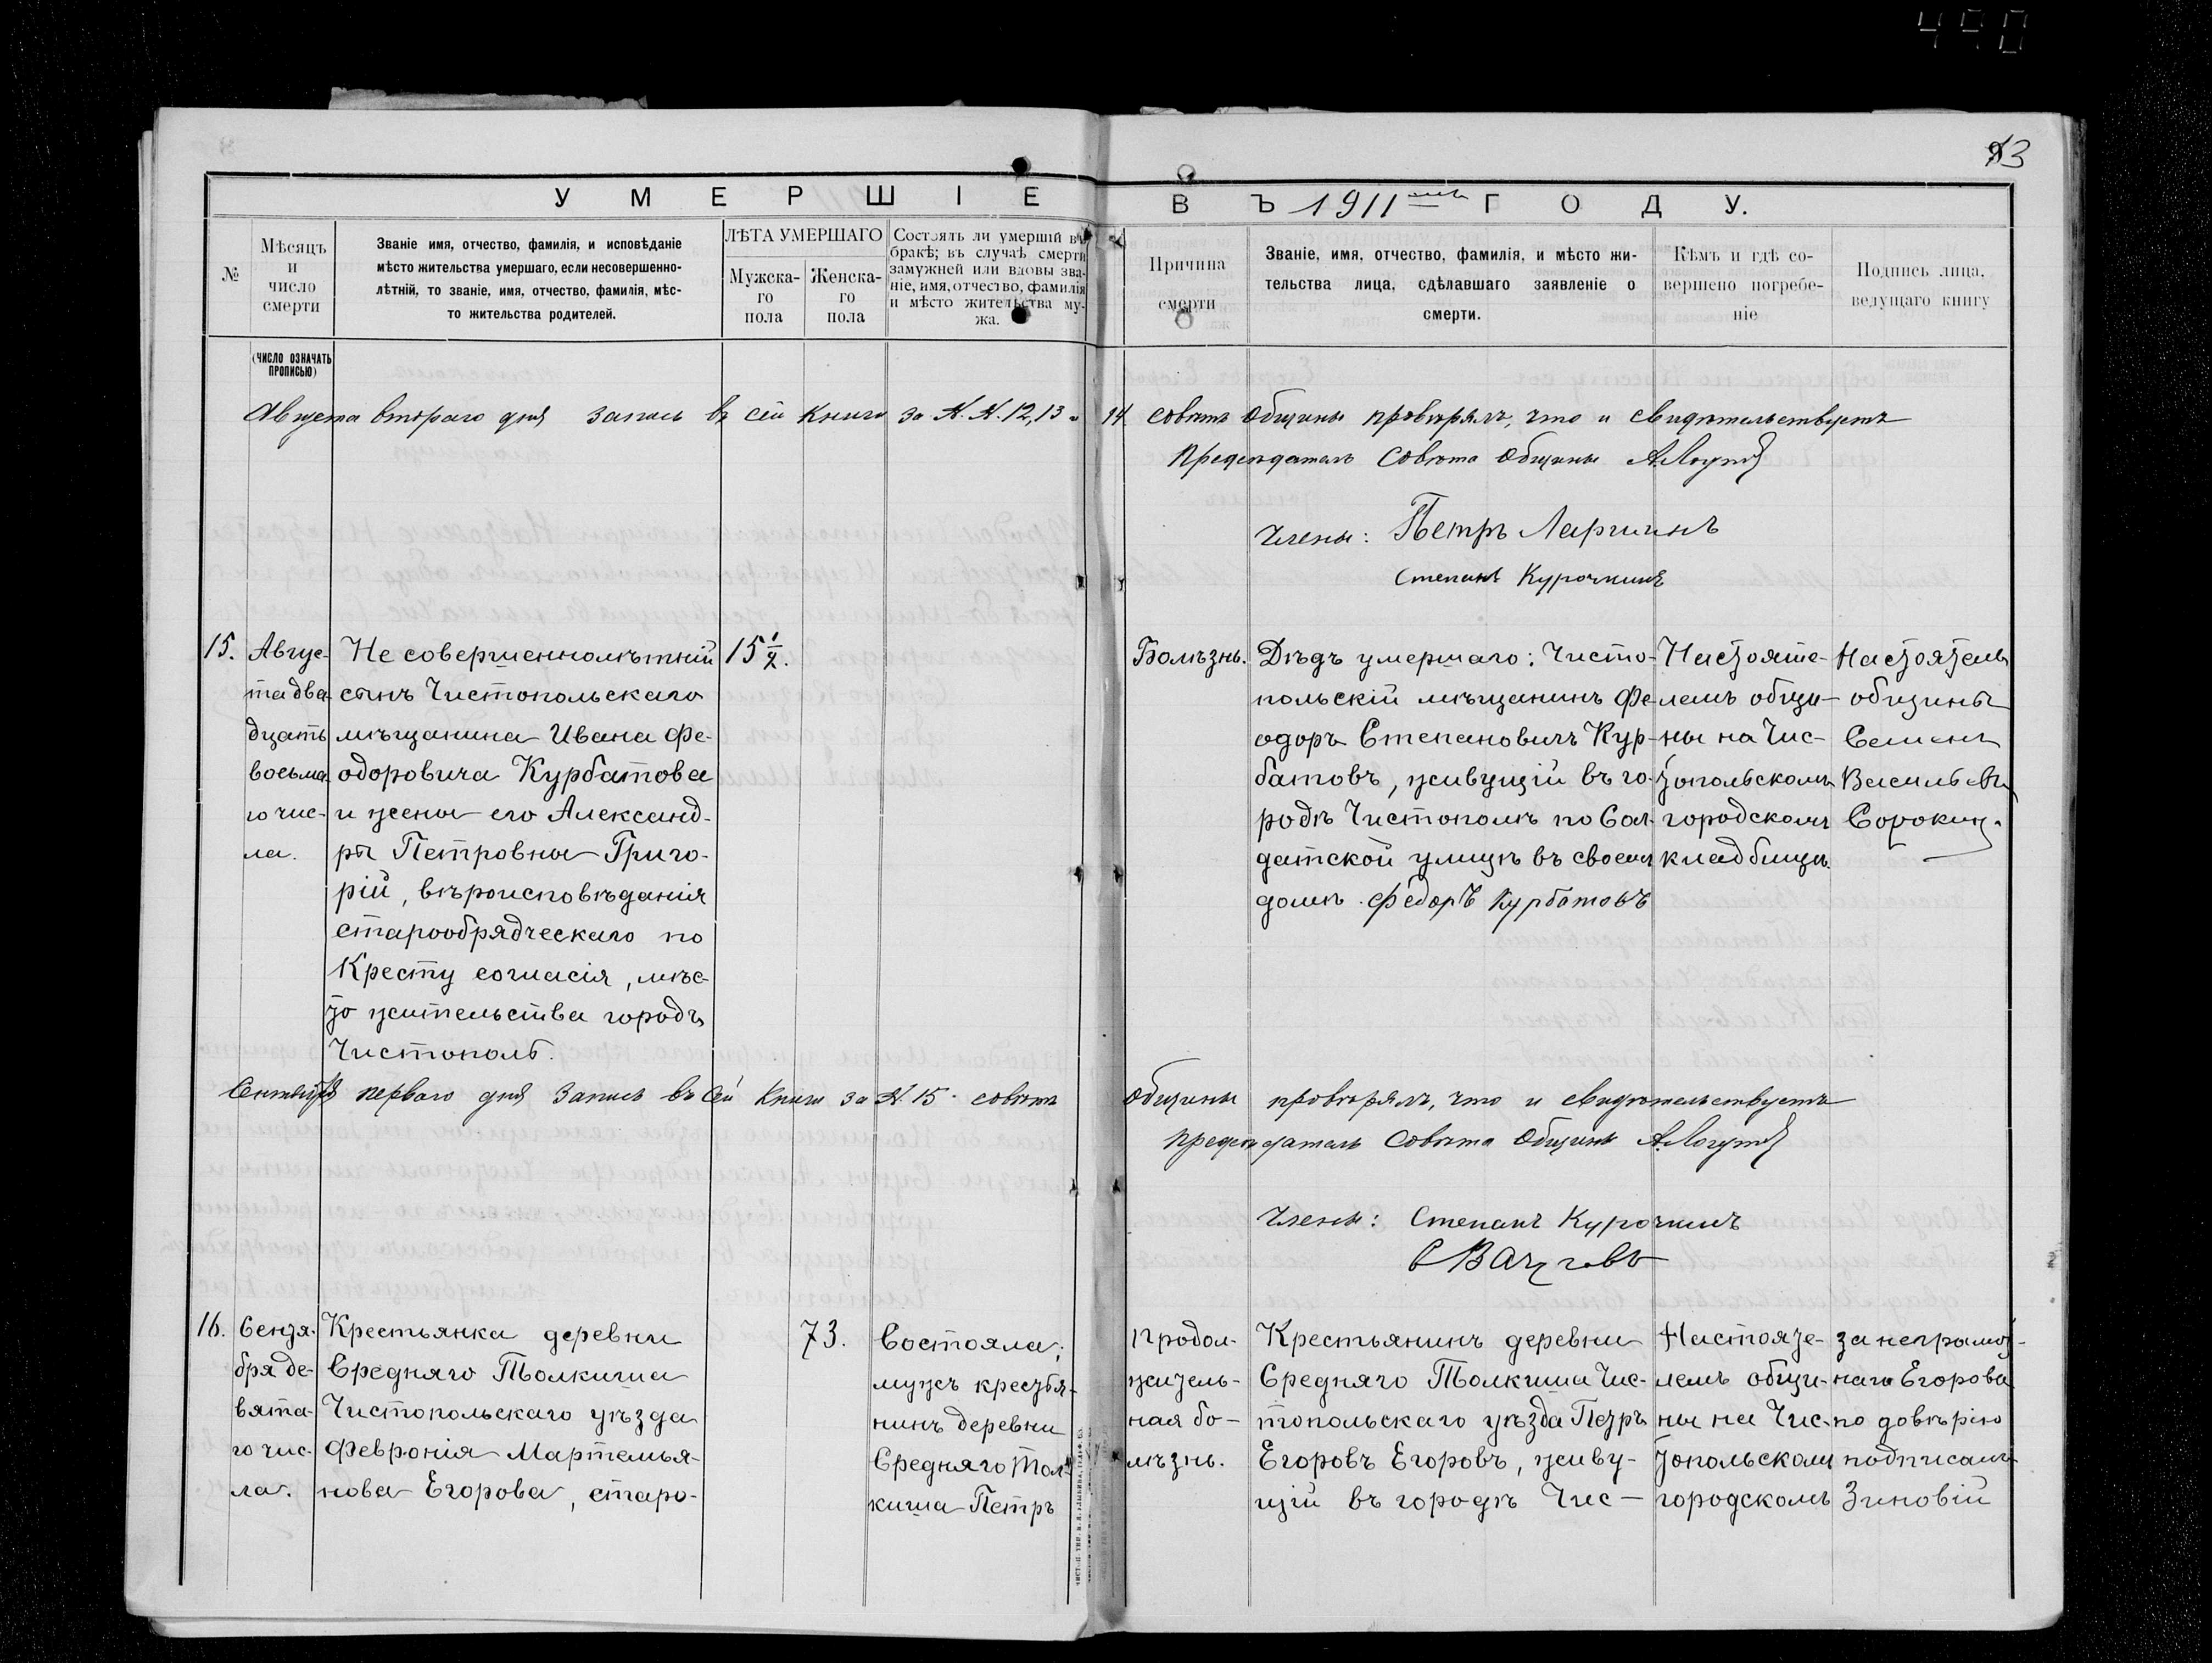 490
13
УМЕРШІЕ ВЪ 1911 мъ ГОДУ.
№
Мѣсяцъ
и
число
смерти
Званіе имя, отчество, фамилія, и исповѣданіе
мѣсто жительства умершаго, если несовершенно-
лѣтній, то званіе, имя, отчество, фамилія, мѣс-
то жительства родителей.
ЛѢТА УМЕРШАГО
Мужска-
го
пола
Женска-
го
пола
Состоялъ ли умершій въ
бракѣ; въ случаѣ смерти
замужней или вдовы зва-
ніе, имя, отчество, фамилія
и мѣсто жительства му-
жа.
Причина
смерти
Званіе, имя, отчество, фамилія, и мѣсто жи-
тельства лица, сдѣлавшаго заявленіе о
смерти.
Кѣмъ и гдѣ со-
вершено погребе-
ніе
Подпись лица,
ведущаго книгу
(ЧИСЛО ОЗНАЧАТЬ
ПРОПИСЬЮ)
Августа второго дня запись въ сей книги за N.N. 12, 13 и 14. совѣтъ Общины провѣрялъ, что и свидѣтельствуетъ
Предсѣдатель Совѣта Общины
Члены: Петръ Ларшинъ
Степанъ Курочкинъ
15.
Авгус-
та два-
дцать
восьма-
го чис-
ла.
Не совершеннолѣтній
сынъ Чистопольскаго
мѣщанина Ивана Фе-
одоровича Курбатова
и жены его Александ-
ры Петровны Григо-
рій, вѣроисповѣданія
старообрядческаго по
Кресту согласія, мѣс-
то жительства городъ
Чистополь.
15 1/2.
Болѣзнь.
Дѣдъ умершаго: Чисто-
польскій мѣщанинъ Фе-
одоръ Степановичъ Кур-
батовъ, живущій въ го-
родѣ Чистополѣ по Сол-
датской улицѣ въ своемъ
домѣ. Федоръ Курбатовъ
Настояте-
лемъ общи-
ны на Чис-
топольскомъ
городскомъ
кладбищѣ.
Настоятель
общины
Семенъ
Васильевъ
Сорокин.
Сентября перваго дня запись въ сей книги за N 15. совѣтъ Общины провѣрялъ, что и свидѣтельствуетъ
предсѣдатель Совѣта Общины
Члены: Степанъ Курочкинъ
16.
Сентя-
бря де-
вята-
го чис-
ла.
Крестьянка деревни
Средняго Толкиша
Чистопольскаго уѣзда
Февронія Мартемья-
нова Егорова, старо-
73.
Состояла;
мужъ крестья-
нинъ деревни
Средняго Тол-
киша Петръ
Продол-
житель-
ная бо-
лѣзнь.
Крестьянинъ деревни
Средняго Толкиша Чис-
топольскаго уѣзда Петръ
Егоровъ Егоровъ, живу-
щій въ городѣ Чис-
Настояте-
лемъ общи-
ны на Чис-
топольскомъ
городскомъ
за неграмот-
наго Егорова
по довѣрію
подписалъ
Зиновій